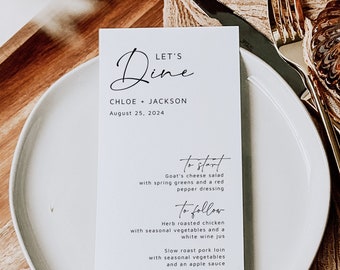 LET'S
Dine
CHLOE + JACKSON
August 25, 2024
to start
Goat's cheese salad
with spring greens and a red
pepper dressing
to follow
Herb roasted chicken
with seasonal vegetables and a
white wine jus
Slow roast pork loin
with seasonal vegetables
and an apple sauce